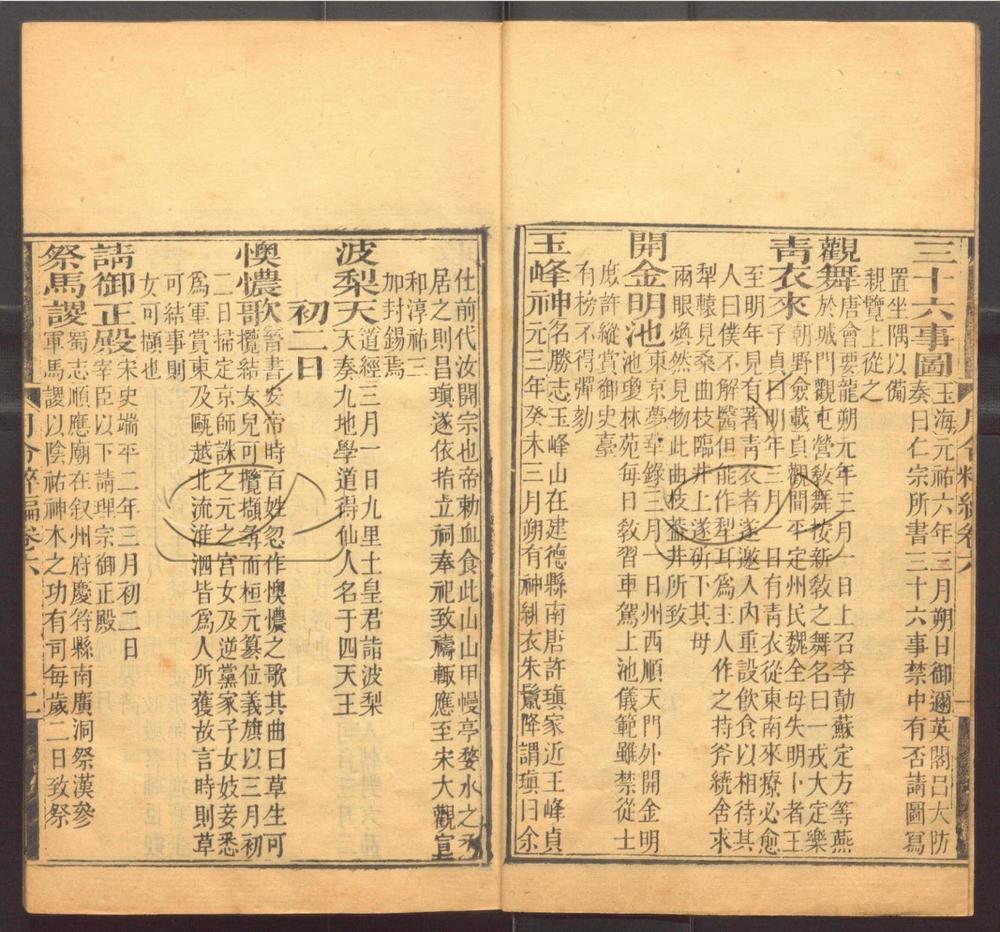 三十六事圖玉海元祐六年三月朔日御邇英閣呂大防
奏曰仁宗所書三十六事禁中有否請圖寫
置坐隅以備
親覽上從之
觀舞唐會要龍朔元年三月一日上召李勣蘇定方等燕
於城門觀屯營教舞按新教之舞名曰一戎大定樂
靑衣來朝野僉載貞觀間平定州民魏全母失明卜者王
子貞曰明年三月一日有靑衣從東南來療必愈
至明年見有著靑衣者遂邀入內重設飲食以相待其
人曰僕不解醫但能作犁耳爲主人作之持斧繞舍求
犁轅見桑曲枝臨井上遂斫下其母
兩眼煥然見物此曲枝葢井所致
開金明池東京夢華錄三月一日州西順天門外開金明
池瓊林苑每日教習車駕上池儀範雖禁從士
庶許縱賞御史臺
有榜不得彈刻
玉峰神名勝志玉峰山在建德縣南唐許瑱家近玉峰貞
元三年癸未三月朔有神緋衣朱鬣降謂瑱曰余
仕前代汝開宗也帝勅血食此山山甲幔亭婺水之
居之則昌瑱遂依指立祠奉祀致禱輒應至宋大觀宣
和淳祐三
加封錫焉
波梨天道經三月一日九里土皇君詣波梨
天奏九地學道得仙人名于四天王
初二日
懊憹歌晉書安帝時百姓忽作懊憹之歌其曲曰草生可
攬結女兒可攬擷尋而桓元篡位義旗以三月初
二日掃定京師誅之元之宮女及逆黨家子女妓妾悉
爲軍賞東及甌越北流淮泗皆爲人所獲故言時則草
可結事則
女可擷也
請御正殿宋史端平二年三月初二日
宰臣以下請理宗御正殿
祭馬謖蜀志順應廟在叙州府慶符縣南廣洞祭漢參
軍馬謖以陰祐神木之功有司每歲二日致祭
月令粹編卷六